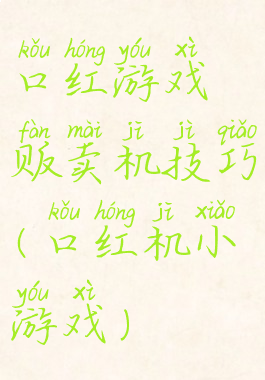 kǒu hóng yóu xì
口红游戏
fàn mài jī jì qiǎo
贩卖机技巧
kǒu hóng jī xiǎo
(口红机小
yóu xì
游戏)